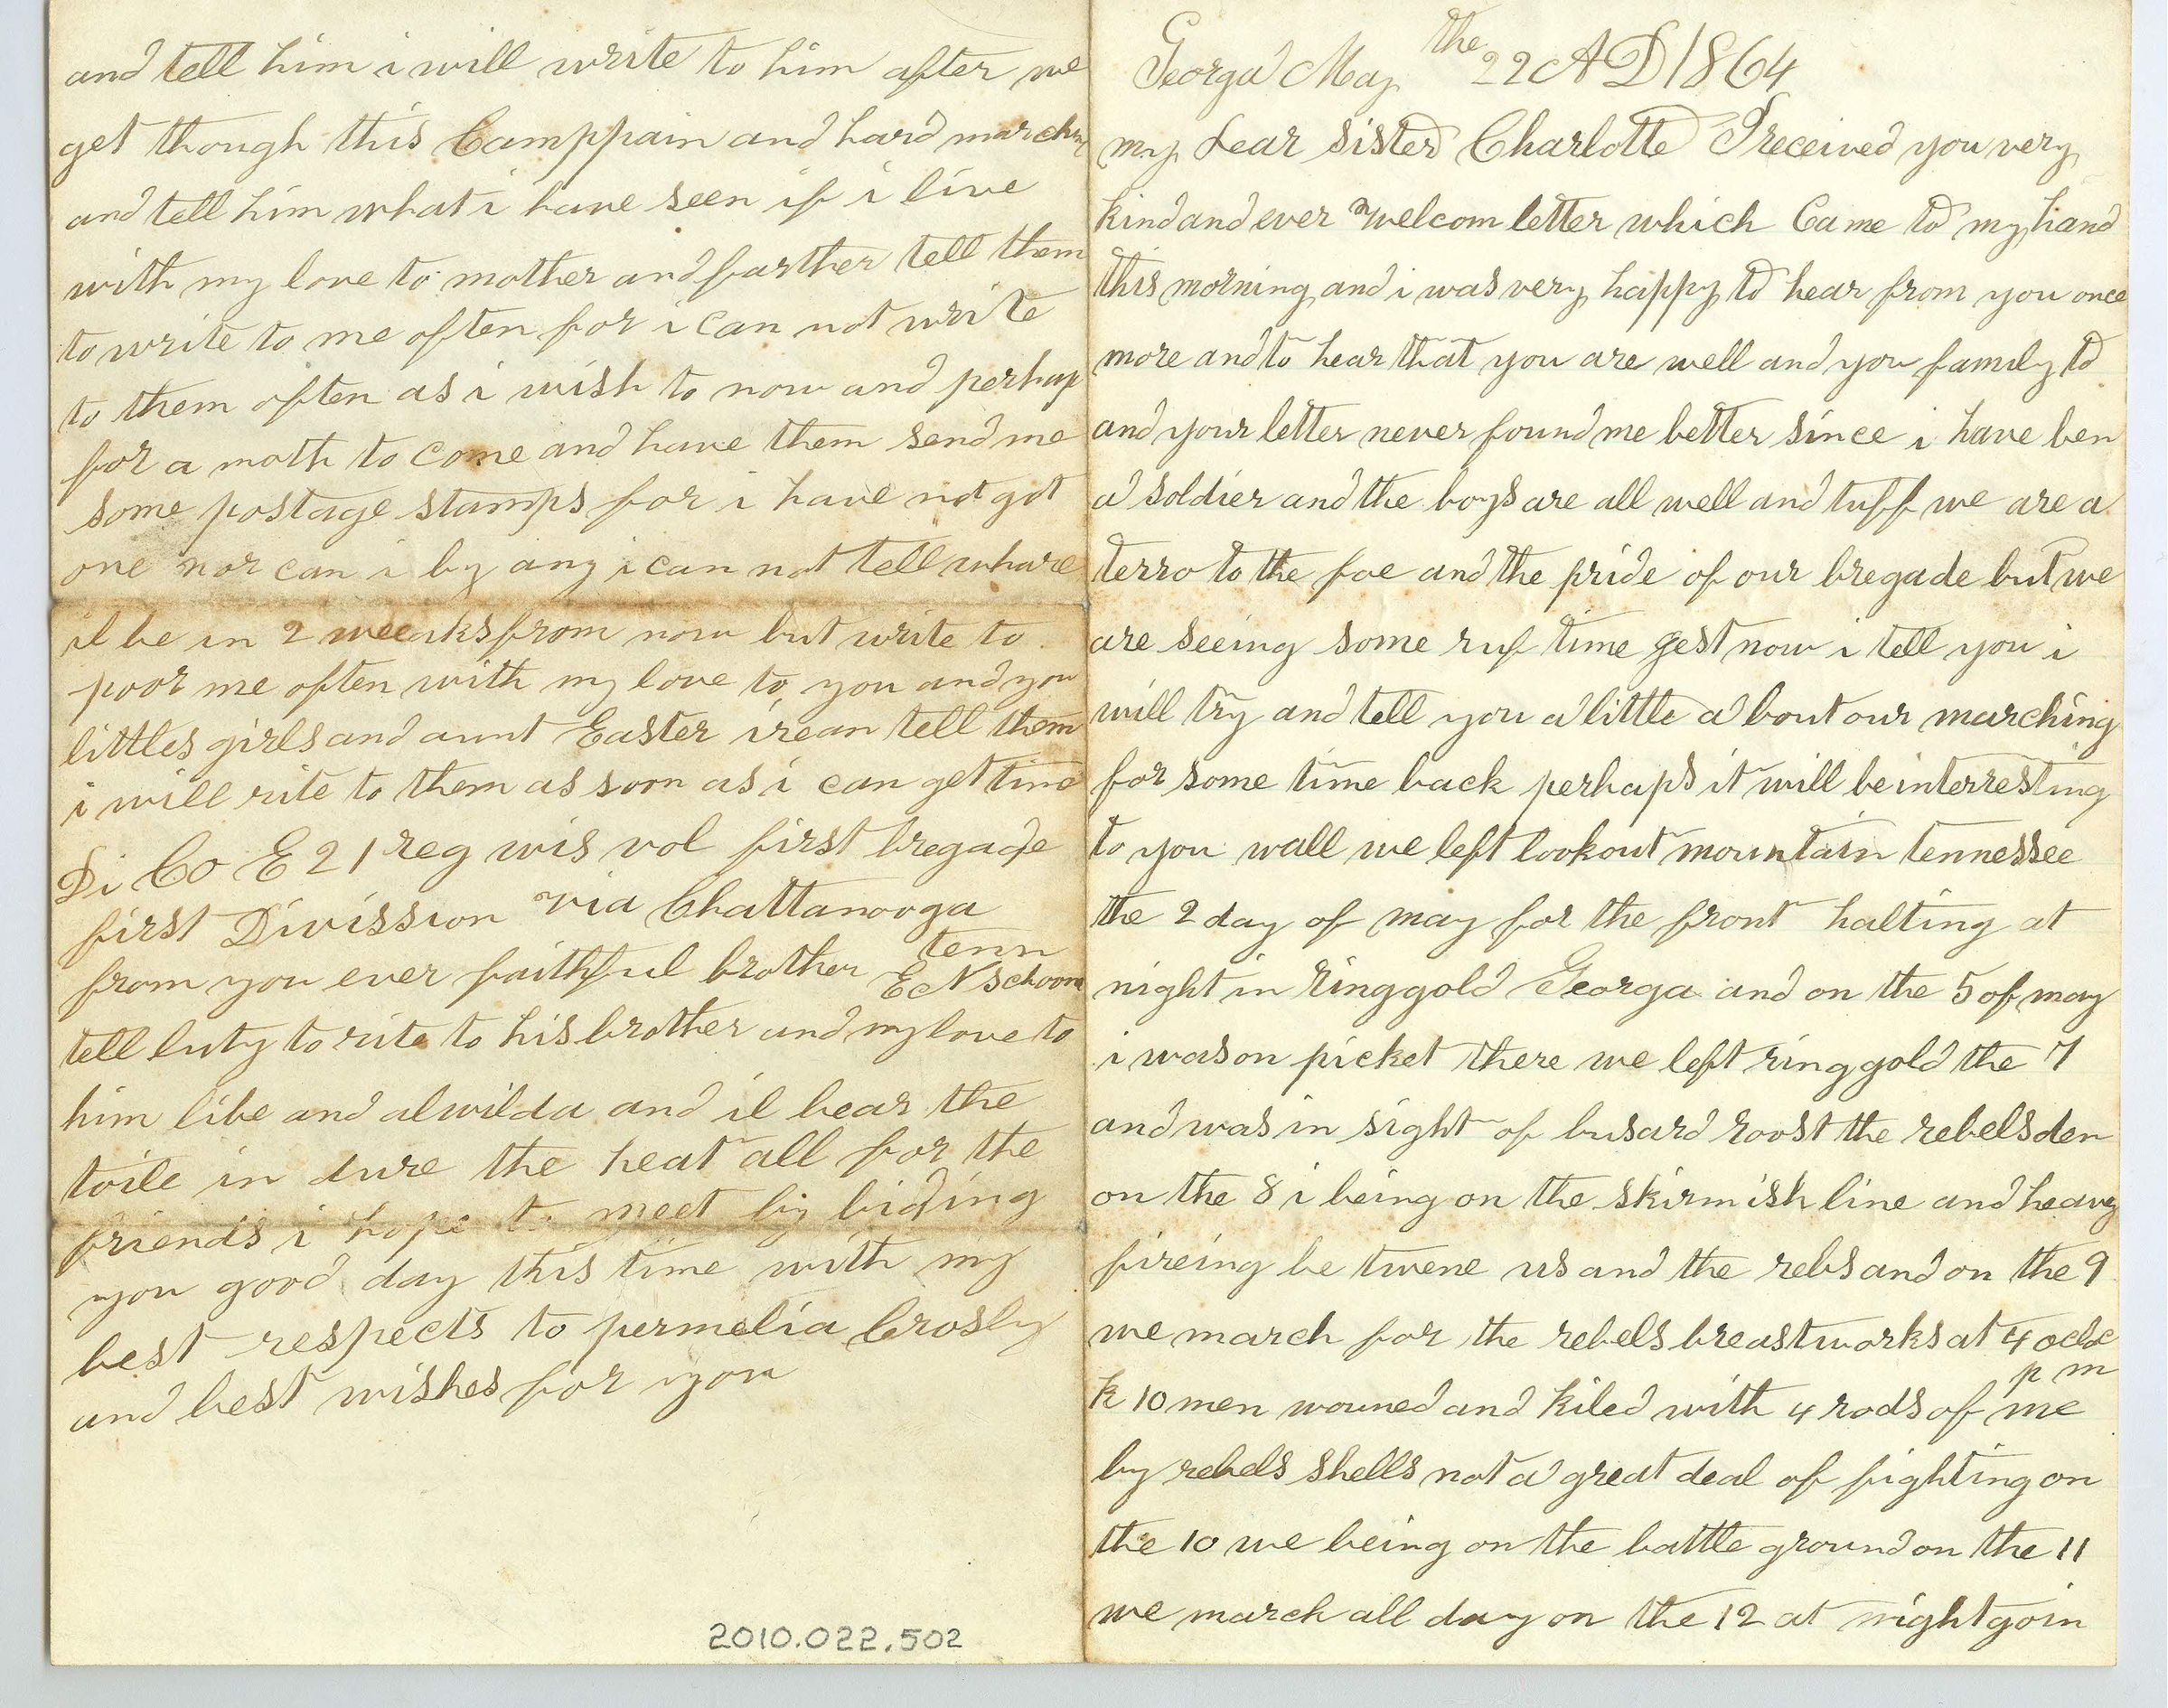 Georga May the 22 AD 1864
my dear sister Charlotte I received you very
kind and ever welcom letter which Came to my hand
this morning and i was very happy to hear from you once
more and to hear that you are well and you family to
and your letter never found me better since i have ben
a soldier and the boys are all well and tuff we are a
terro to the foe and the pride of our bregade but we
are seeing some ruf time gest now i tell you i
will try and tell you a little a bout our marching
for some time back perhaps it will be interresting
to you wall we left lookout mountain tennessee
the 2 day of may for the front halting at
night in ringgold Georga and on the 5 of may
i was on picket there we left ringgold the 7
and was in sight of busard roost the rebels den
on the 8 i being on the skirmish line and heavy
fireing be twene us and the rebs and on the 9
we march for the rebels breastworks at 4 ocloc
p m
k 10 men wouned and kiled with 4 rods of me
by rebels shells not a great deal of fighting on
the 10 we being on the battle ground on the 11
we march all day on the 12 at night goin
and tell him i will write to him after we
get though this Camppain and hard marchng
and tell him what i have seen if i live
with my love to mother and farther tell them
to write to me often for i can not write
to them often as i wish to now and perhap
for a moth to come and have them send me
some postage stamps for i have not got
one nor can i by any i can not tell whare
il be in 2 weeaks from now but write to
poor me often with my love to you and you
littles girls and aunt Easter irean tell them
i will rite to them as soon as i can get time
Di Co E 21 reg wis vol first bregade
first Divission via Chattanooga
tenn
from you ever faithful brother E N Schoon
tell luty to rite to his brother and my love to
him libe and alwilda and il bear the
toile in dure the heat all for the
friends i hope to meet by biding
you good day this time with my
best respects to permelia Crosby
and best wishes for you
2010.022.502